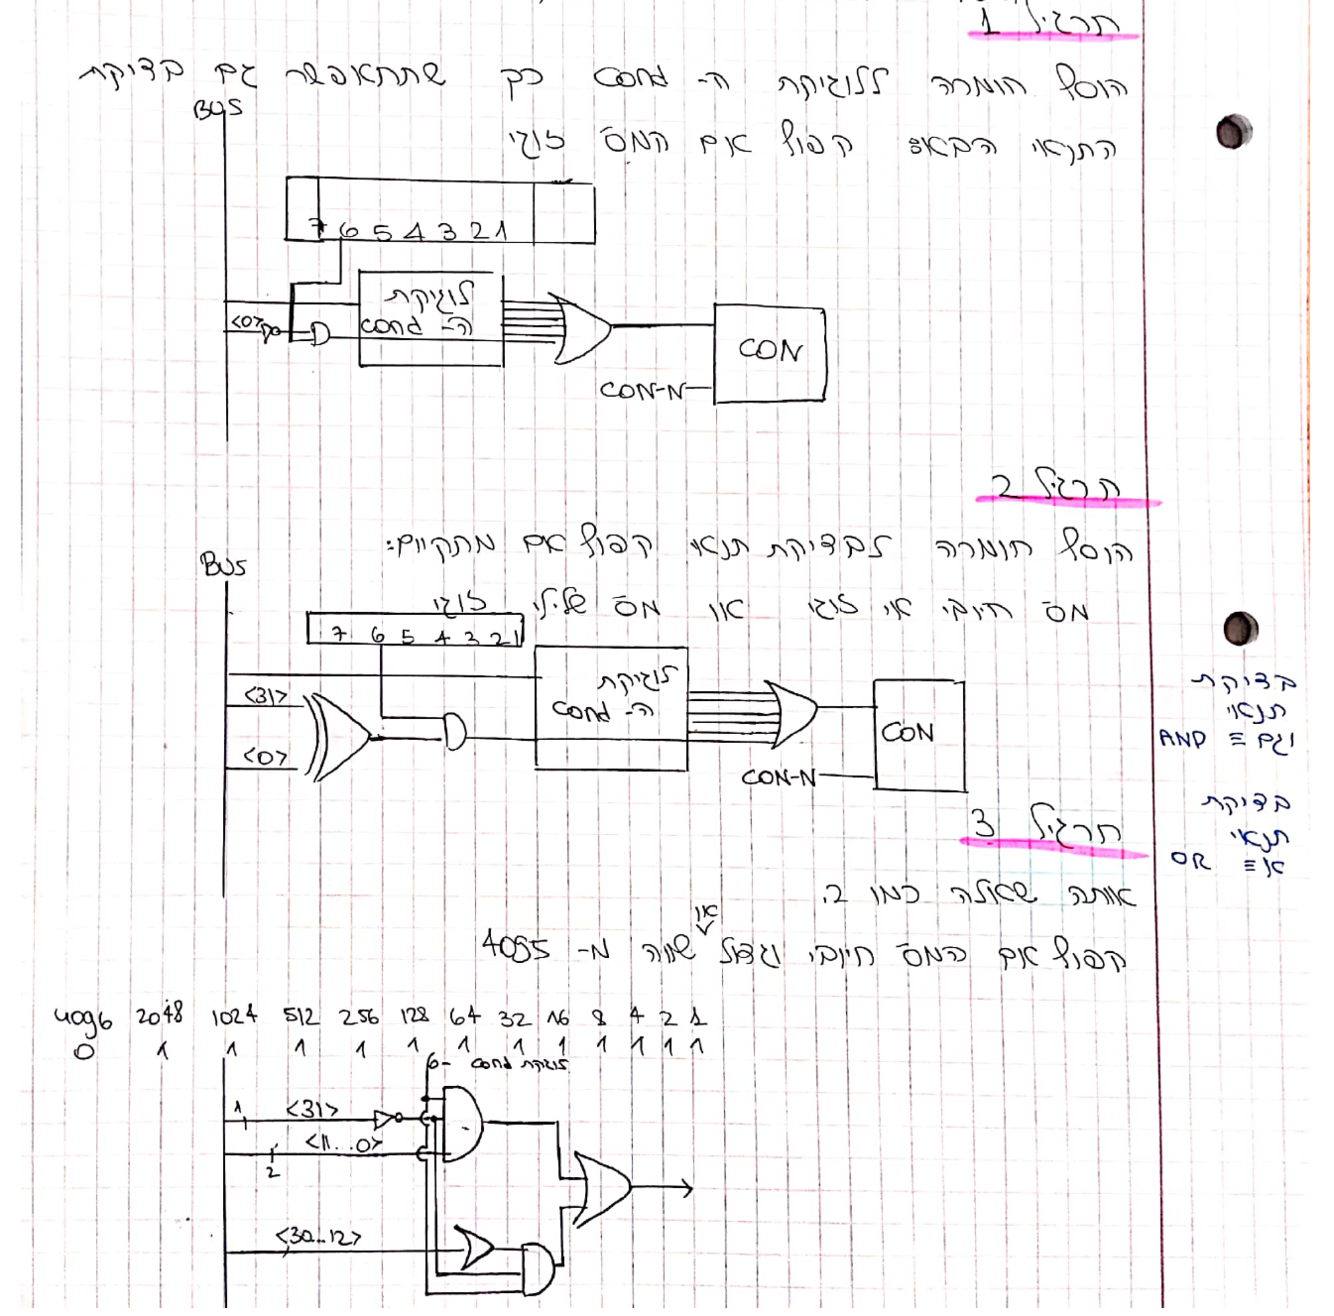 תרגיל 1
הוסף חומרה ללוגיקת ה- cond כך שתתאפשר גם בדיקת
התנאי הבא: קפוץ אם המס' זוגי
BUS
7 6 5 4 3 2 1
<0>
לוגיקת
ה- cond
CON
CON-N
תרגיל 2
הוסף חומרה לבדיקת תנאי קפוץ אם מתקיים:
מס' חיובי אי זוגי או מס' שלילי זוגי
BUS
7 6 5 4 3 2 1
<31>
<0>
לוגיקת
ה- cond
CON
CON-N
בדיקת
תנאי
וגם ≡ AND
בדיקת
תנאי
או ≡ OR
תרגיל 3
אותה שאלה כמו 2.
קפוץ אם המס' חיובי וגדול או שווה מ- 4095
4096 2048 1024 512 256 128 64 32 16 8 4 2 1
0 1 1 1 1 1 1 1 1 1 1 1 1
6- לוגיקת cond
1 <31>
<11...0>
2
<30...12>